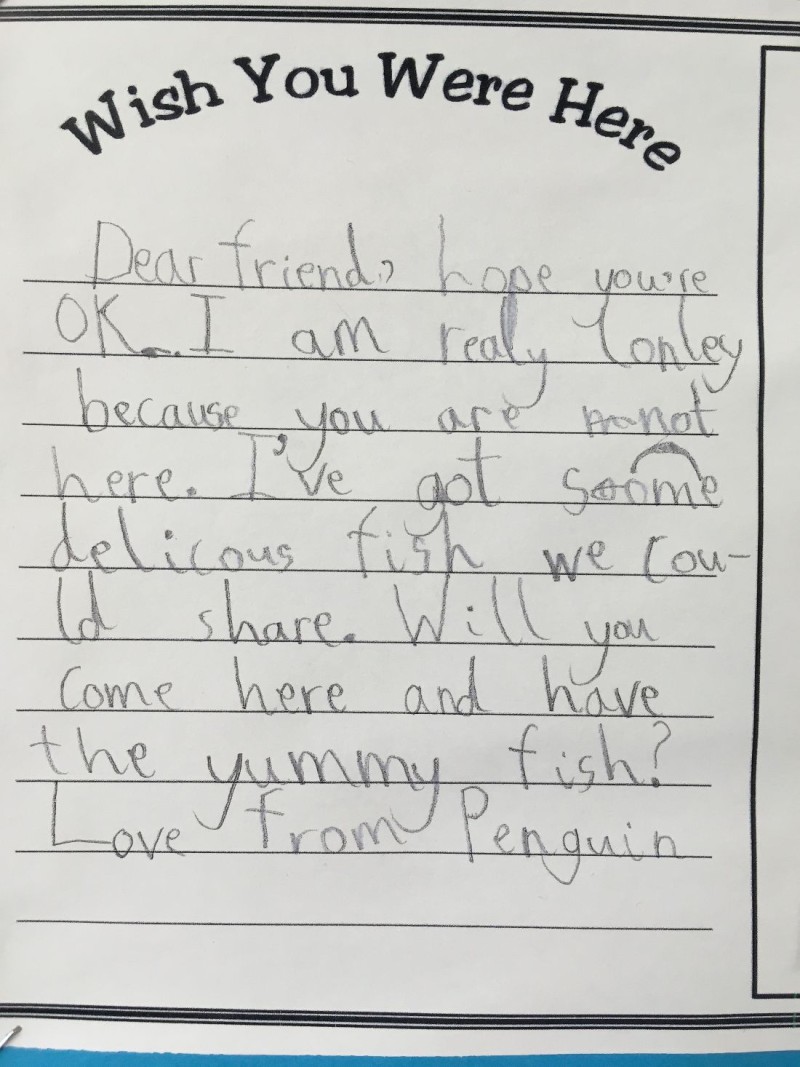 Wish You Were Here
Dear friend, hope you're
OK. I am realy lonley
because you are not
here. I've got some
delicous fish we cou-
ld share. Will you
come here and have
the yummy fish?
Love from Penguin